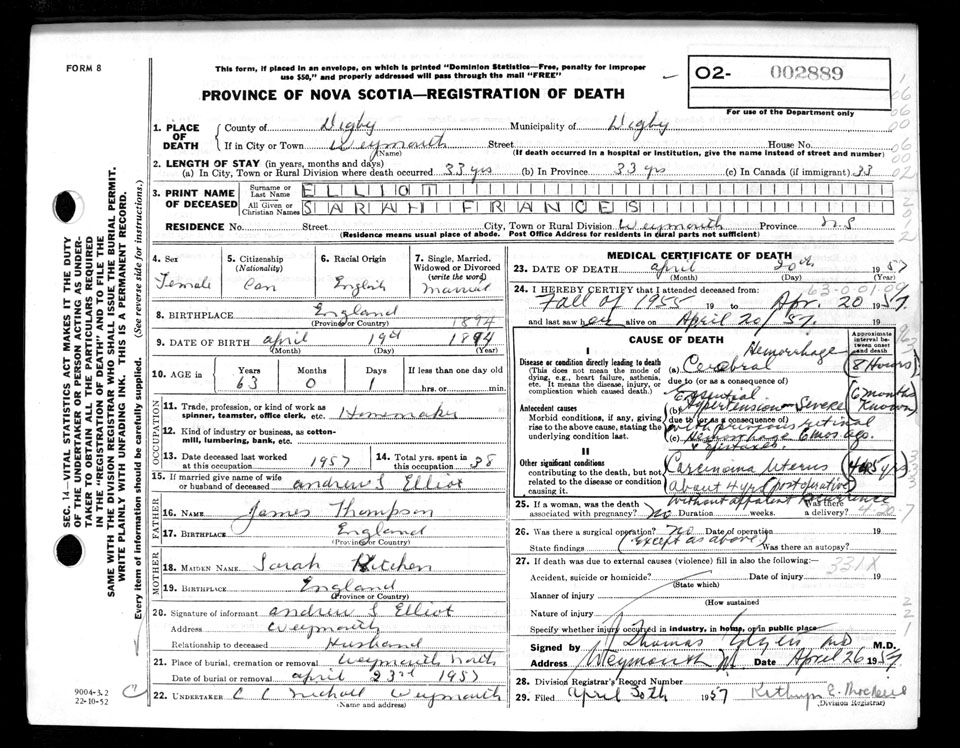 FORM 8
This form, if placed in an envelope, on which is printed "Dominion Statistics—Free, penalty for improper
use $50," and properly addressed will pass through the mail "FREE"
PROVINCE OF NOVA SCOTIA—REGISTRATION OF DEATH
02- 002889
For use of the Department only
1. PLACE OF DEATH
County of Digby Municipality of Digby
If in City or Town Weymouth Street House No.
(Name) (If death occurred in a hospital or institution, give the name instead of street and number)
2. LENGTH OF STAY (in years, months and days)
(a) In City, Town or Rural Division where death occurred 33 yrs (b) In Province 33 yrs (c) In Canada (if immigrant) 33
3. PRINT NAME OF DECEASED
Surname or Last Name ELLIOT
All Given or Christian Names SARAH FRANCES
RESIDENCE No. Street City, Town or Rural Division Weymouth Province N S
(Residence means usual place of abode. Post Office Address for residents in rural parts not sufficient)
4. Sex
Female
5. Citizenship
(Nationality)
Can
6. Racial Origin
English
7. Single, Married,
Widowed or Divorced
(write the word)
Married
8. BIRTHPLACE England
(Province or Country)
1894
9. DATE OF BIRTH April 19th 1894
(Month) (Day) (Year)
10. AGE in
Years Months Days If less than one day old
63 0 1 hrs. or min.
OCCUPATION
11. Trade, profession, or kind of work as
spinner, teamster, office clerk, etc. Homemaker
12. Kind of industry or business, as cotton-
mill, lumbering, bank, etc.
13. Date deceased last worked
at this occupation 1957
14. Total yrs. spent in
this occupation 38
15. If married give name of wife
or husband of deceased Andrew S Elliot
FATHER
16. NAME James Thompson
17. BIRTHPLACE England
(Province or Country)
MOTHER
18. MAIDEN NAME Sarah Kitchen
19. BIRTHPLACE England
(Province or Country)
20. Signature of informant Andrew S Elliot
Address Weymouth
Relationship to deceased Husband
21. Place of burial, cremation or removal Weymouth North
Date of burial or removal April 23rd 1957
22. UNDERTAKER C C Weymouth
(Name and address)
9004-3.2
22-10-52
MEDICAL CERTIFICATE OF DEATH
23. DATE OF DEATH April 20th 1957
(Month) (Day) (Year)
24. I HEREBY CERTIFY that I attended deceased from:
63-0-01-09
Fall of 1955 19 to Apr. 20 1957.
and last saw her alive on April 20/57. 19
CAUSE OF DEATH
Approximate interval between onset and death
I
Disease or condition directly leading to death
(This does not mean the mode of
dying, e.g., heart failure, asthenia,
etc. It means the disease, injury, or
complication which caused death.)
(a) Cerebral Hemorrhage
(8 Hours)
due to (or as a consequence of)
Antecedent causes
Morbid conditions, if any, giving
rise to the above cause, stating the
underlying condition last.
Essential
(b) Hypertension Severe
(6 months Known)
due to (or as a consequence of)
with previous retinal
(c) Hemorrhage 6 mos ago.
II
Other significant conditions
contributing to the death, but not
related to the disease or condition
causing it.
Carcinoma Uterus
(4 or 5 yrs)
About 4 yrs (post operative)
without apparent Recurrence
25. If a woman, was the death
associated with pregnancy? No Duration weeks. Was there a delivery?
4-20-7
26. Was there a surgical operation? No Date of operation 19
(Except as above)
State findings Was there an autopsy?
27. If death was due to external causes (violence) fill in also the following:
331X
Accident, suicide or homicide? Date of injury 19
(State which)
Manner of injury
(How sustained
Nature of injury
Specify whether injury occurred in industry, in home, or in public place
Signed by Thomas M.D.
Address Weymouth N. Date April 26 1957.
28. Division Registrar's Record Number
29. Filed April 30th 1957 Kathryn E.
(Division Registrar)
SEC. 14—VITAL STATISTICS ACT MAKES IT THE DUTY
OF THE UNDERTAKER OR PERSON ACTING AS UNDER-
TAKER TO OBTAIN ALL THE PARTICULARS REQUIRED
IN THE "REGISTRATION OF DEATH" AND TO FILE THE
SAME WITH THE DIVISION REGISTRAR WHO SHALL ISSUE THE BURIAL PERMIT.
WRITE PLAINLY WITH UNFADING INK. THIS IS A PERMANENT RECORD.
Every item of information should be carefully supplied. (See reverse side for instructions.)